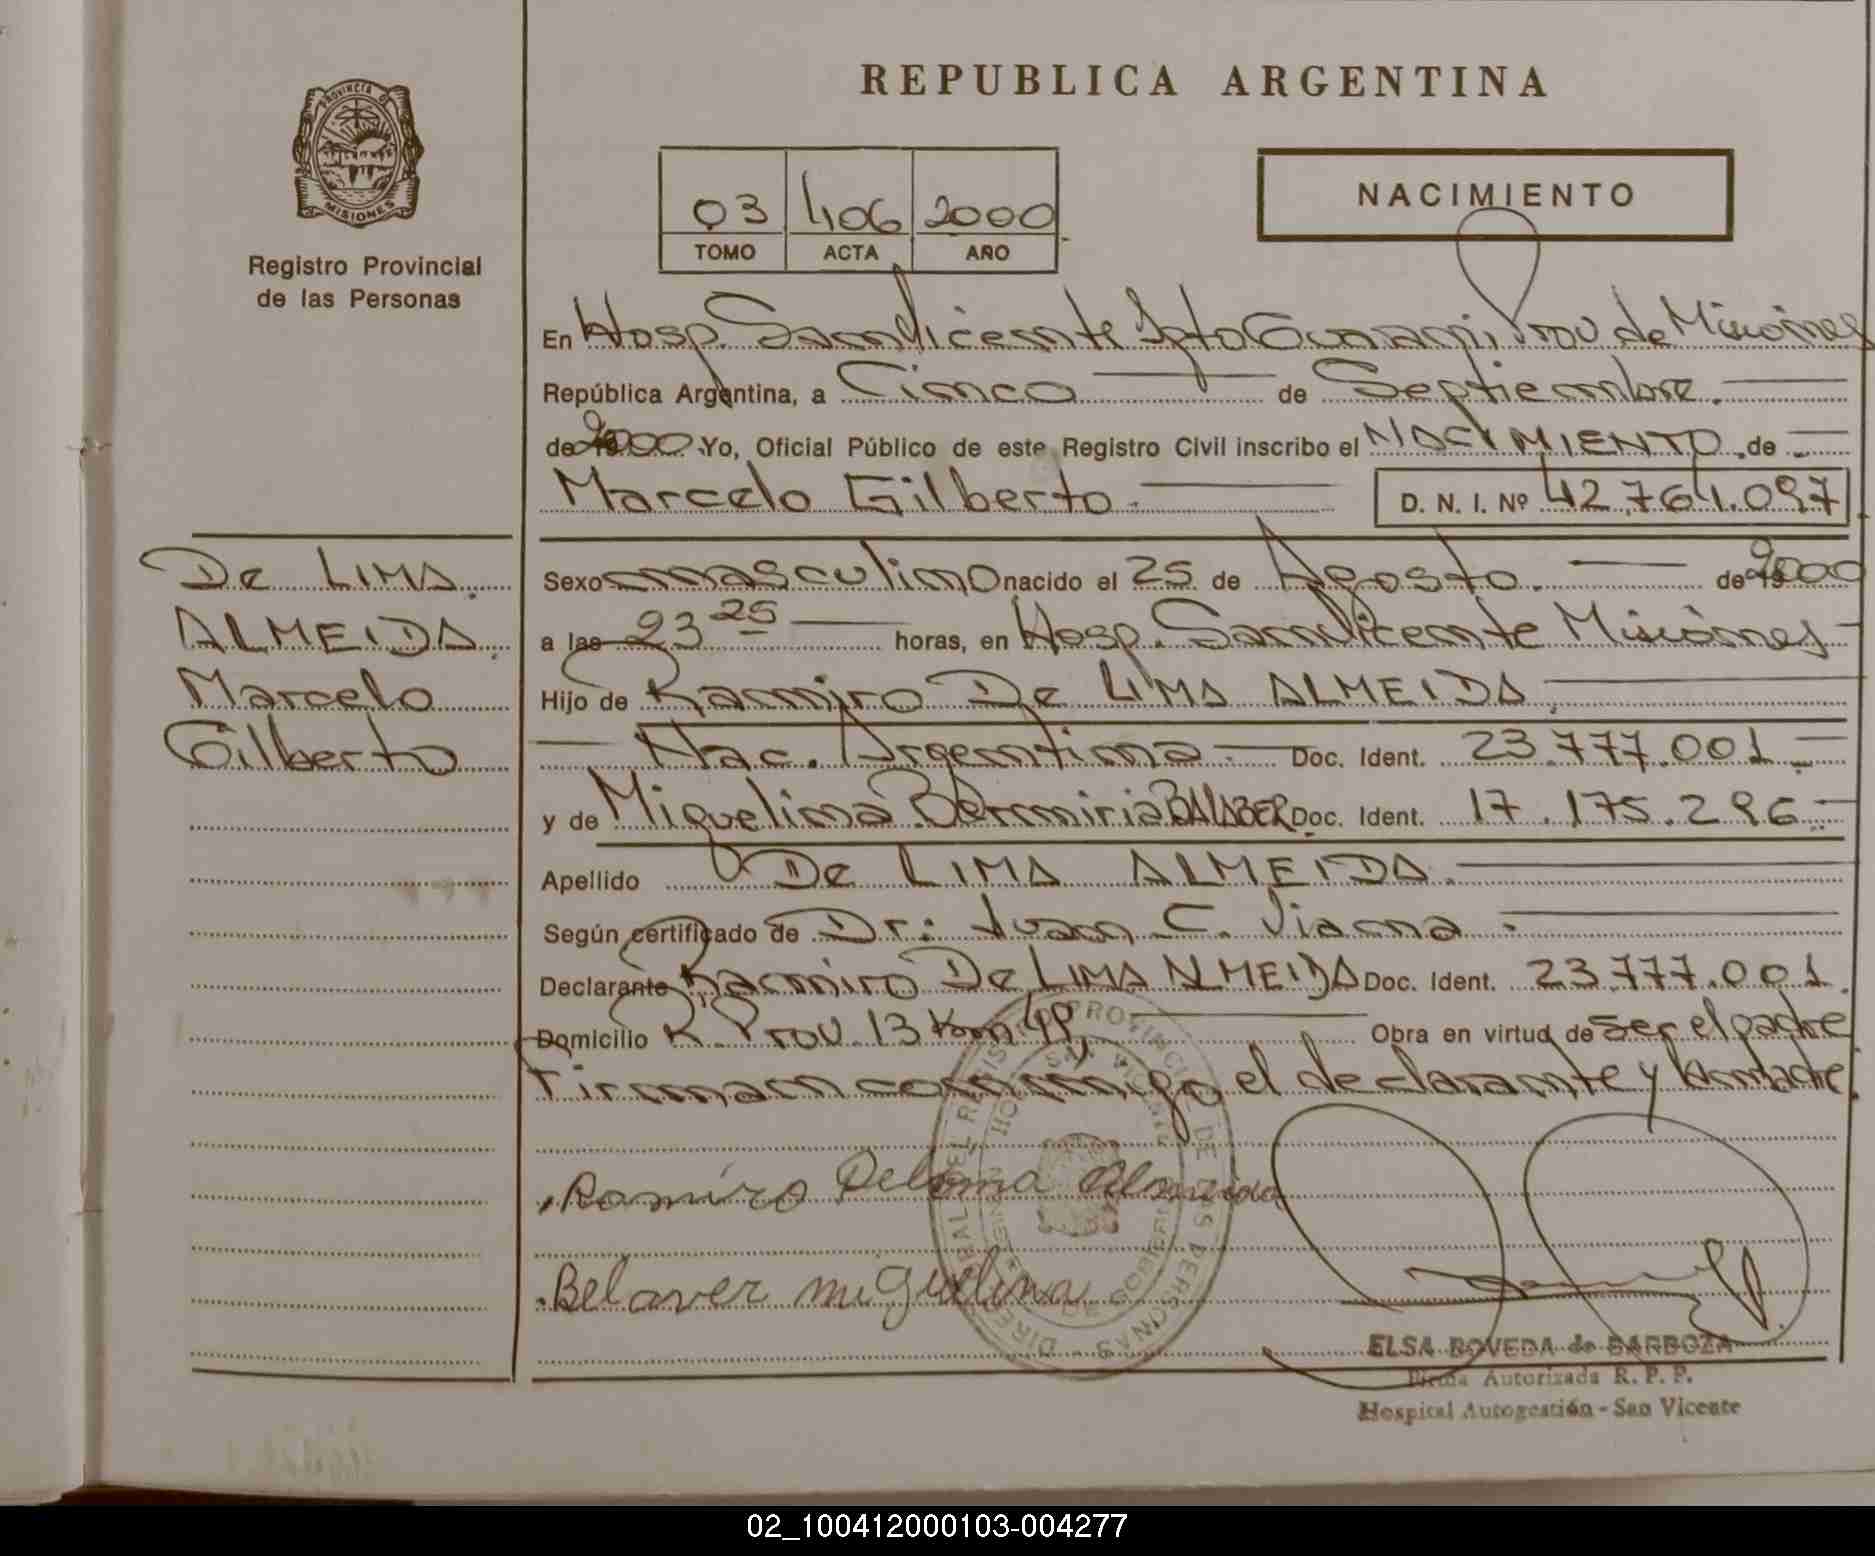 REPUBLICA ARGENTINA
PROVINCIA D
MISIONES
Registro Provincial
de las Personas
03 406 2000
TOMO ACTA AÑO
NACIMIENTO
En Hosp. San Vicente Dpto Guarani Prov de Misiones
República Argentina, a Cinco de Septiembre.
de 2000 Yo, Oficial Público de este Registro Civil inscribo el NACIMIENTO de
Marcelo Gilberto D. N. I. Nº 42.764.097
De LIMA
ALMEIDA
Marcelo
Gilberto
Sexo masculino nacido el 25 de Agosto. de 2000
a las 23 25 horas, en Hosp. San Vicente Misiones
Hijo de Ramiro De LIMA ALMEIDA
Nac. Argentina Doc. Ident. 23.777.001
y de Miguelina Doc. Ident. 17.175.296
Apellido De LIMA ALMEIDA
Según certificado de Dr: Juan C. Viana
Declarante Ramiro De LIMA ALMEIDA Doc. Ident. 23.777.001
Domicilio R. Prov. 13 Km 49 Obra en virtud de ser el padre
Firman conmigo el declarante y la madre.
Ramiro Delima Almeida
Belaver miguelina
ELSA BOVEDA de BARBOZA
Firma Autorizada R. P. P.
Hospital Autogestión - San Vicente
02_100412000103-004277